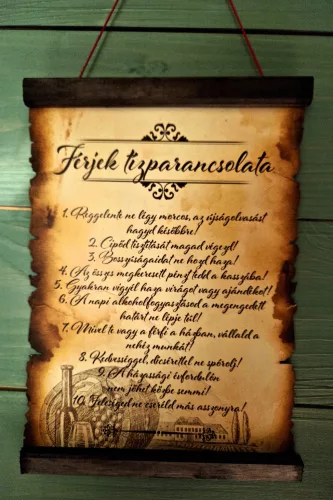 Férjek tízparancsolata
1. Reggelente ne légy morcos, az újságolvasást
hagyd későbbre!
2. Cipőd tisztítását magad végezd!
3. Bosszúságaidat ne hozd haza!
4. Az összes megkeresett pénzt tedd a kasszába!
5. Gyakran vigyél haza virágot vagy ajándékot!
6. A napi alkoholfogyasztásod a megengedett
határt ne lépje túl!
7. Mivel te vagy a férfi a házban, vállald a
nehéz munkát!
8. Kedvességgel, dicsérettel ne spórolj!
9. A házassági évfordulón
nem jöhet közbe semmi!
10. Feleséged ne cseréld más asszonyra!